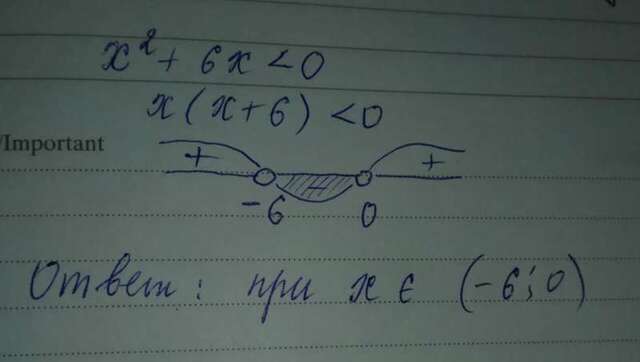 x² + 6x < 0
x(x+6) < 0
/Important
+ − +
-6 0
Ответ: при x ∈ (-6; 0)